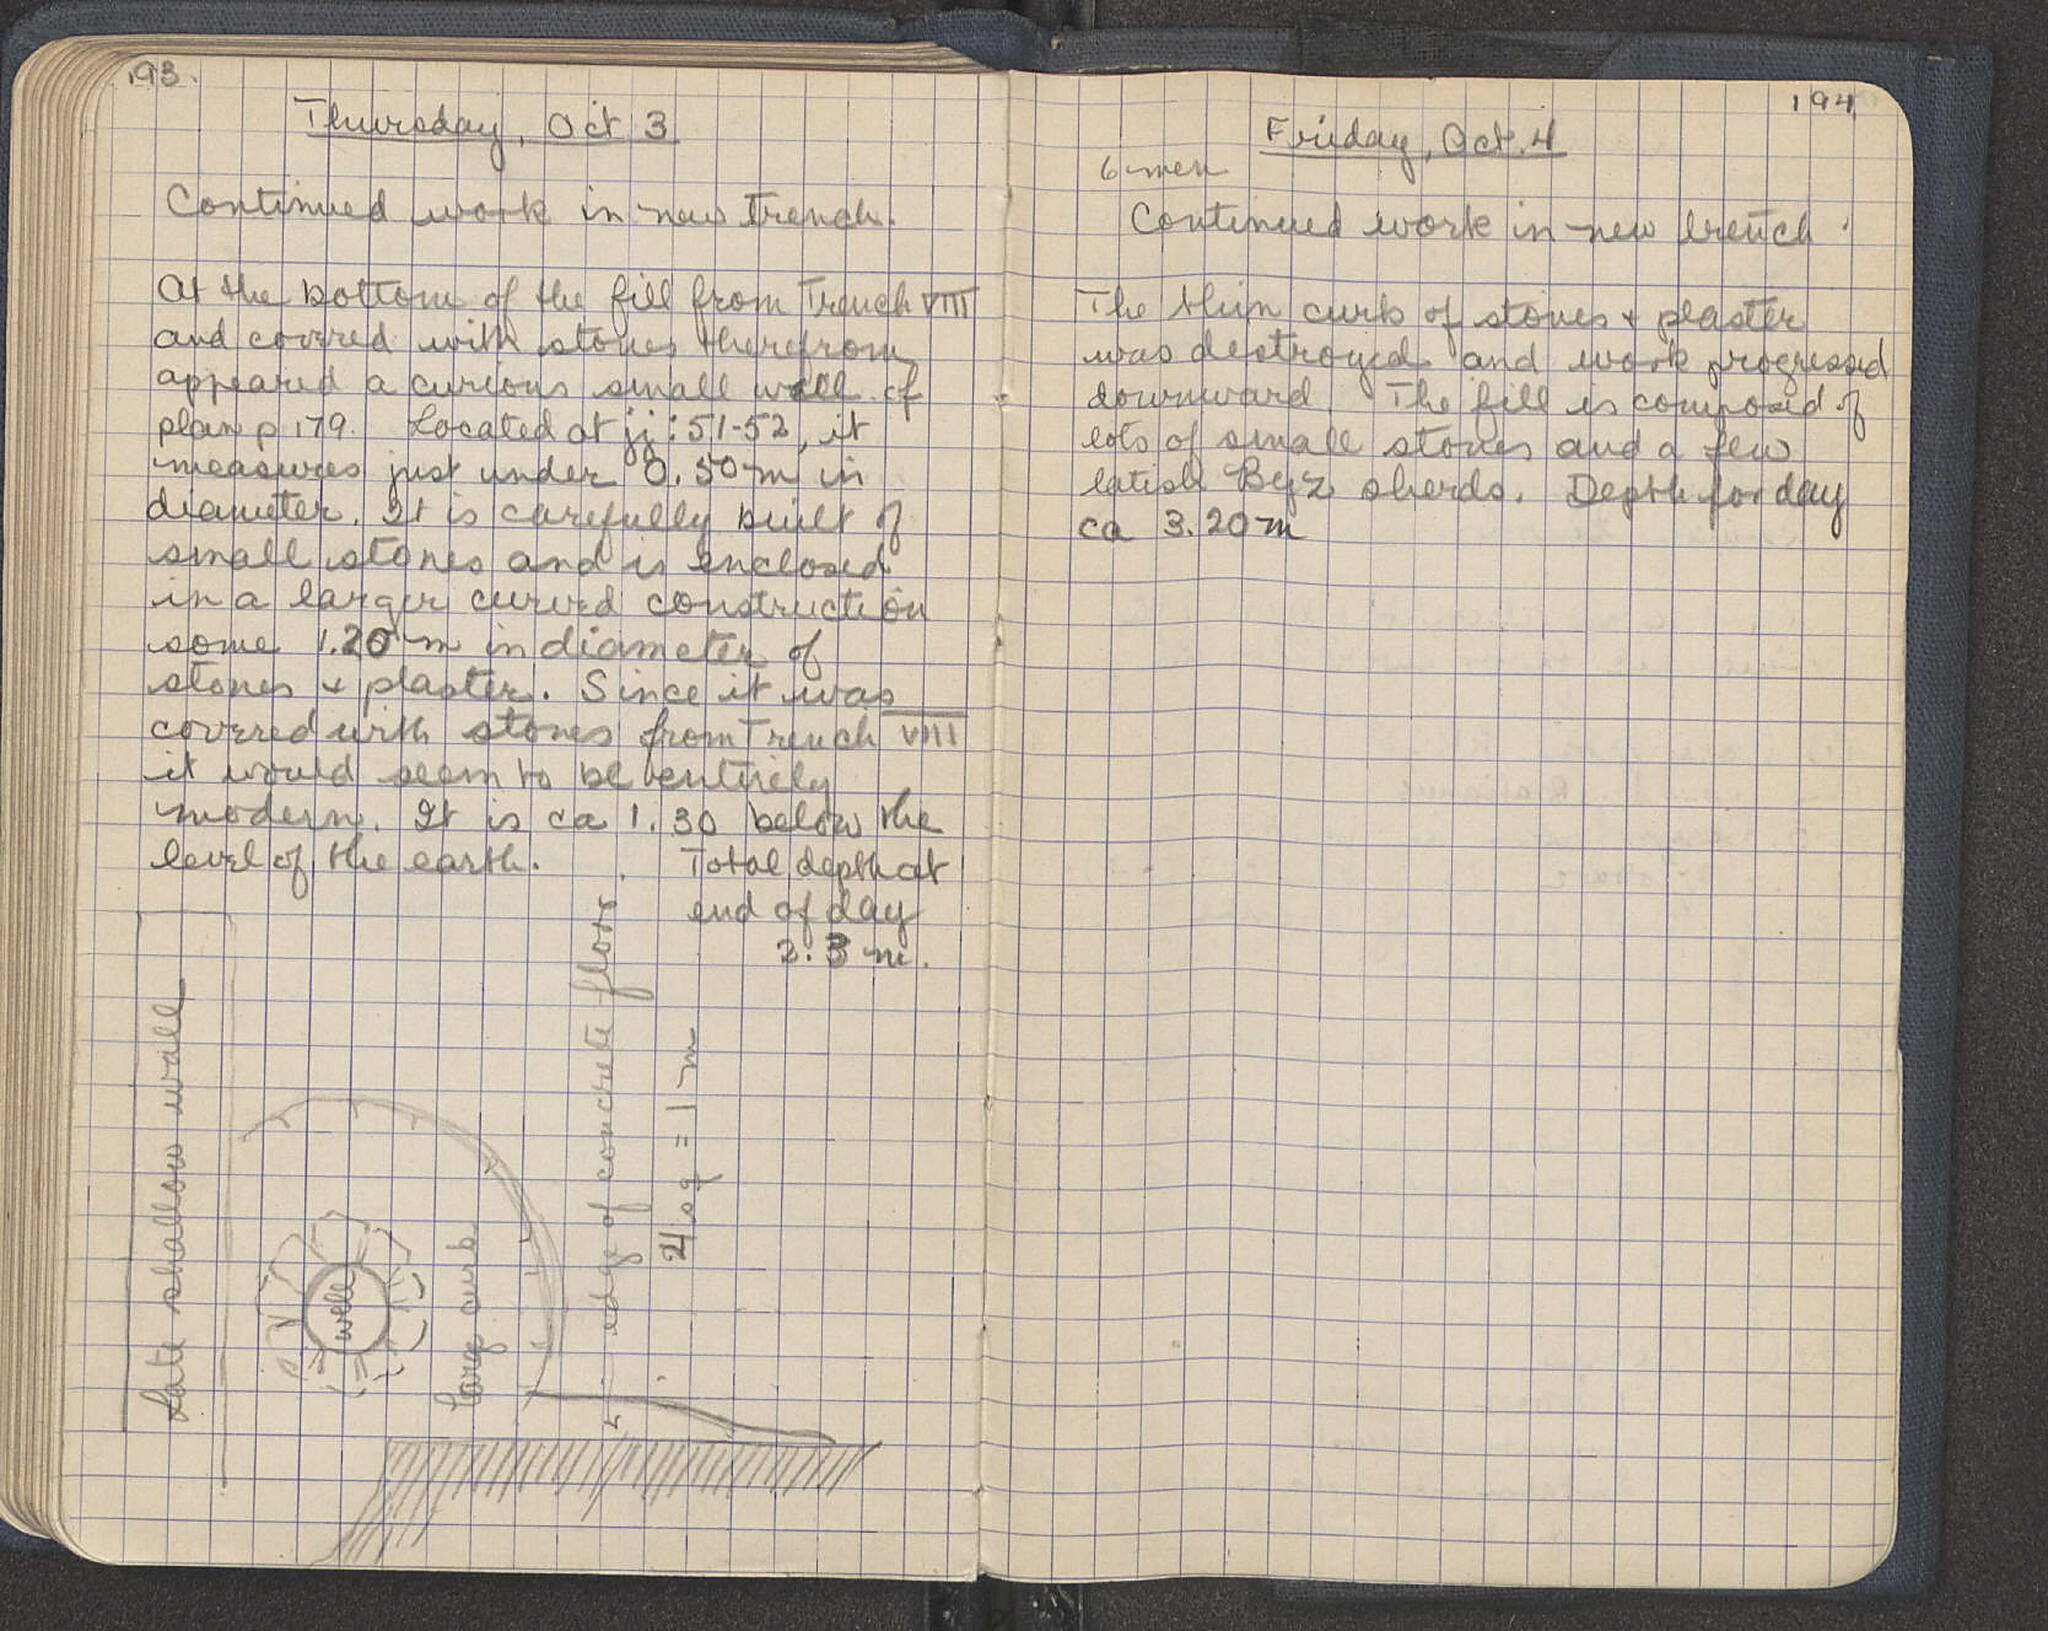 193.
Thursday, Oct 3
Continued work in new Trench.
At the bottom of the fill from Trench VIII
and covered with stones therefrom
appeared a curious small well. cf
plan p 179. Located at jj: 51-52, it
measures just under 0.50 m in
diameter. It is carefully built of
small stones and is enclosed
in a larger curved construction
some 1.20 m in diameter of
stones & plaster. Since it was
covered with stones from Trench VIII
it would seem to be entirely
modern. It is ca 1.30 below the
level of the earth.
Total depth at
end of day
2.3 m.
Late shallow wall
well
large curb
edge of concrete floor
4 sq = 1 m
194
Friday, Oct. 4
6 men
Continued work in new trench.
The thin curb of stones & plaster
was destroyed and work progressed
downward. The fill is composed of
lots of small stones and a few
latish Byz sherds. Depth for day
ca 3.20 m